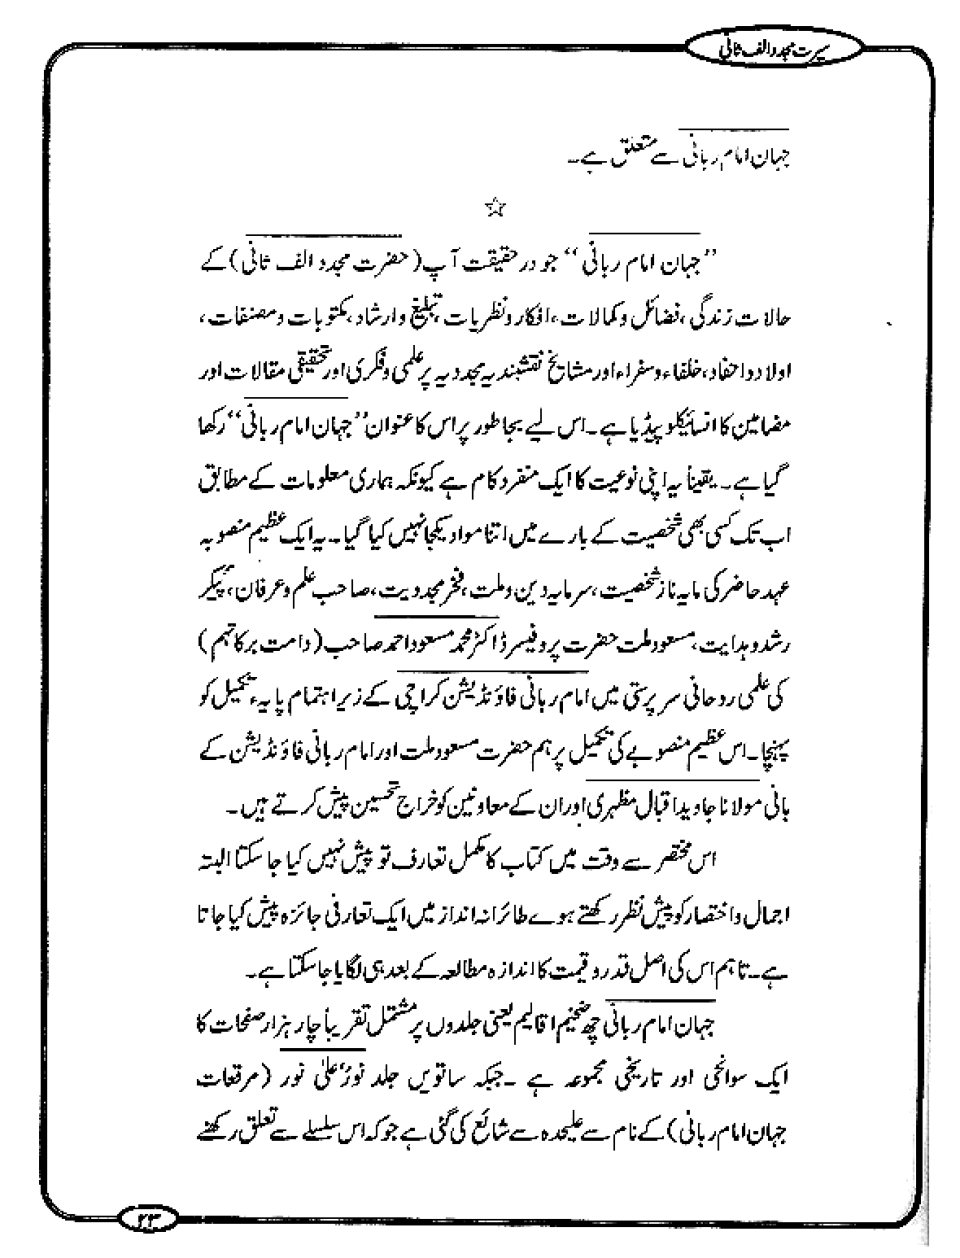 سیرت مجدد الف ثانی
جہان امام ربانی سے متعلق ہے۔
☆
”جہان امام ربانی“ جو در حقیقت آپ (حضرت مجدد الف ثانی) کے
حالات زندگی، فضائل و کمالات، افکار و نظریات، تبلیغ و ارشاد، مکتوبات و مصنفات،
اولاد و احفاد، خلفاء و سفراء اور مشایخ نقشبندیہ مجددیہ پر علمی و فکری اور تحقیقی مقالات اور
مضامین کا انسائیکلوپیڈیا ہے۔ اس لیے بجا طور پر اس کا عنوان ”جہان امام ربانی“ رکھا
گیا ہے۔ یقیناً یہ اپنی نوعیت کا ایک منفرد کام ہے کیونکہ ہماری معلومات کے مطابق
اب تک کسی بھی شخصیت کے بارے میں اتنا مواد یکجا نہیں کیا گیا۔ یہ ایک عظیم منصوبہ
عہد حاضر کی مایہ ناز شخصیت، سرمایہ دین و ملت، فخر مجددیت، صاحب علم و عرفان، پیکر
رشد و ہدایت، مسعود ملت حضرت پروفیسر ڈاکٹر محمد مسعود احمد صاحب (دامت برکاتہم)
کی علمی روحانی سرپرستی میں امام ربانی فاؤنڈیشن کراچی کے زیر اہتمام پایہء تکمیل کو
پہنچا۔ اس عظیم منصوبے کی تکمیل پر ہم حضرت مسعود ملت اور امام ربانی فاؤنڈیشن کے
بانی مولانا جاوید اقبال مظہری اور ان کے معاونین کو خراج تحسین پیش کرتے ہیں۔
اس مختصر سے وقت میں کتاب کا مکمل تعارف تو پیش نہیں کیا جا سکتا البتہ
اجمال و اختصار کو پیش نظر رکھتے ہوے طائرانہ انداز میں ایک تعارفی جائزہ پیش کیا جاتا
ہے۔ تاہم اس کی اصل قدر و قیمت کا اندازہ مطالعہ کے بعد ہی لگایا جا سکتا ہے۔
جہان امام ربانی چھ ضخیم اقالیم یعنی جلدوں پر مشتمل تقریباً چار ہزار صفحات کا
ایک سوانحی اور تاریخی مجموعہ ہے ۔ جبکہ ساتویں جلد نورٌ علیٰ نور (مرقعات
جہان امام ربانی) کے نام سے علیحدہ سے شائع کی گئی ہے جو کہ اس سلسلے سے تعلق رکھنے
۲۳